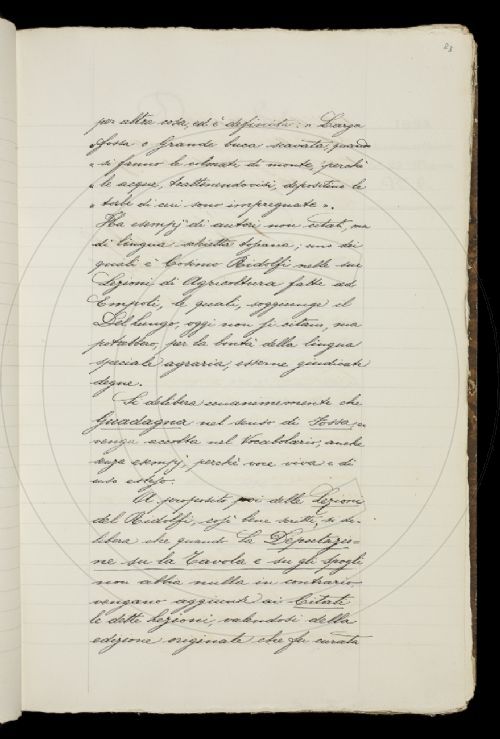 83
per altra cosa, ed è definita: « Larga
« fossa o Grande buca scavata, quando
« si fanno le colmate di monte, perchè
« le acque, trattenendovisi, depositino le
« torbe di cui sono impregnate ».
Ha esempj di autori non citati, ma
di lingua schietta toscana; uno dei
quali è Cosimo Ridolfi nelle sue
Lezioni di Agricoltura fatte ad
Empoli, le quali, soggiunge il
Del Lungo, oggi non si citano, ma
potrebbero, per la bontà della lingua
speciale agraria, esserne giudicate
degne.
Si delibera unanimemente che
Guadagna nel senso di Fossa,
venga accolta nel Vocabolario, anche
senza esempj, perchè voce viva e di
uso esteso.
A proposito poi delle Lezioni
del Ridolfi, così bene scritte, si de-
libera che quando la Deputazio-
ne su la Tavola e su gli spogli
non abbia nulla in contrario
vengano aggiunte ai Citati
le dette Lezioni, valendosi della
edizione originale che fu curata